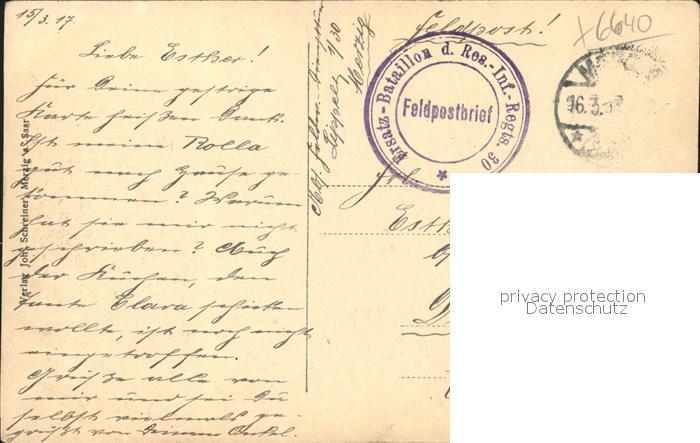 15/3.17
Liebe Esther!
Für Deine gestrige
Karte heißen Dank.
Ist meine Rolla
gut nach Hause ge-
kommen? Warum
hat sie mir nicht
geschrieben? Auch
der Kuchen, den
Tante Clara schicken
wollte, ist noch nicht
eingetroffen.
Grüße alle von
mir und sei Du
selbst vielmals ge-
grüßt von Deinem Onkel.
Verlag Joh. Schreiner, Merzig a. Saar
1/30
Merzig
Feldpost!
+6640
Ersatz-Bataillon d. Res.-Inf.-Regts. 30
Feldpostbrief
16.3.
Esth
privacy protection
Datenschutz